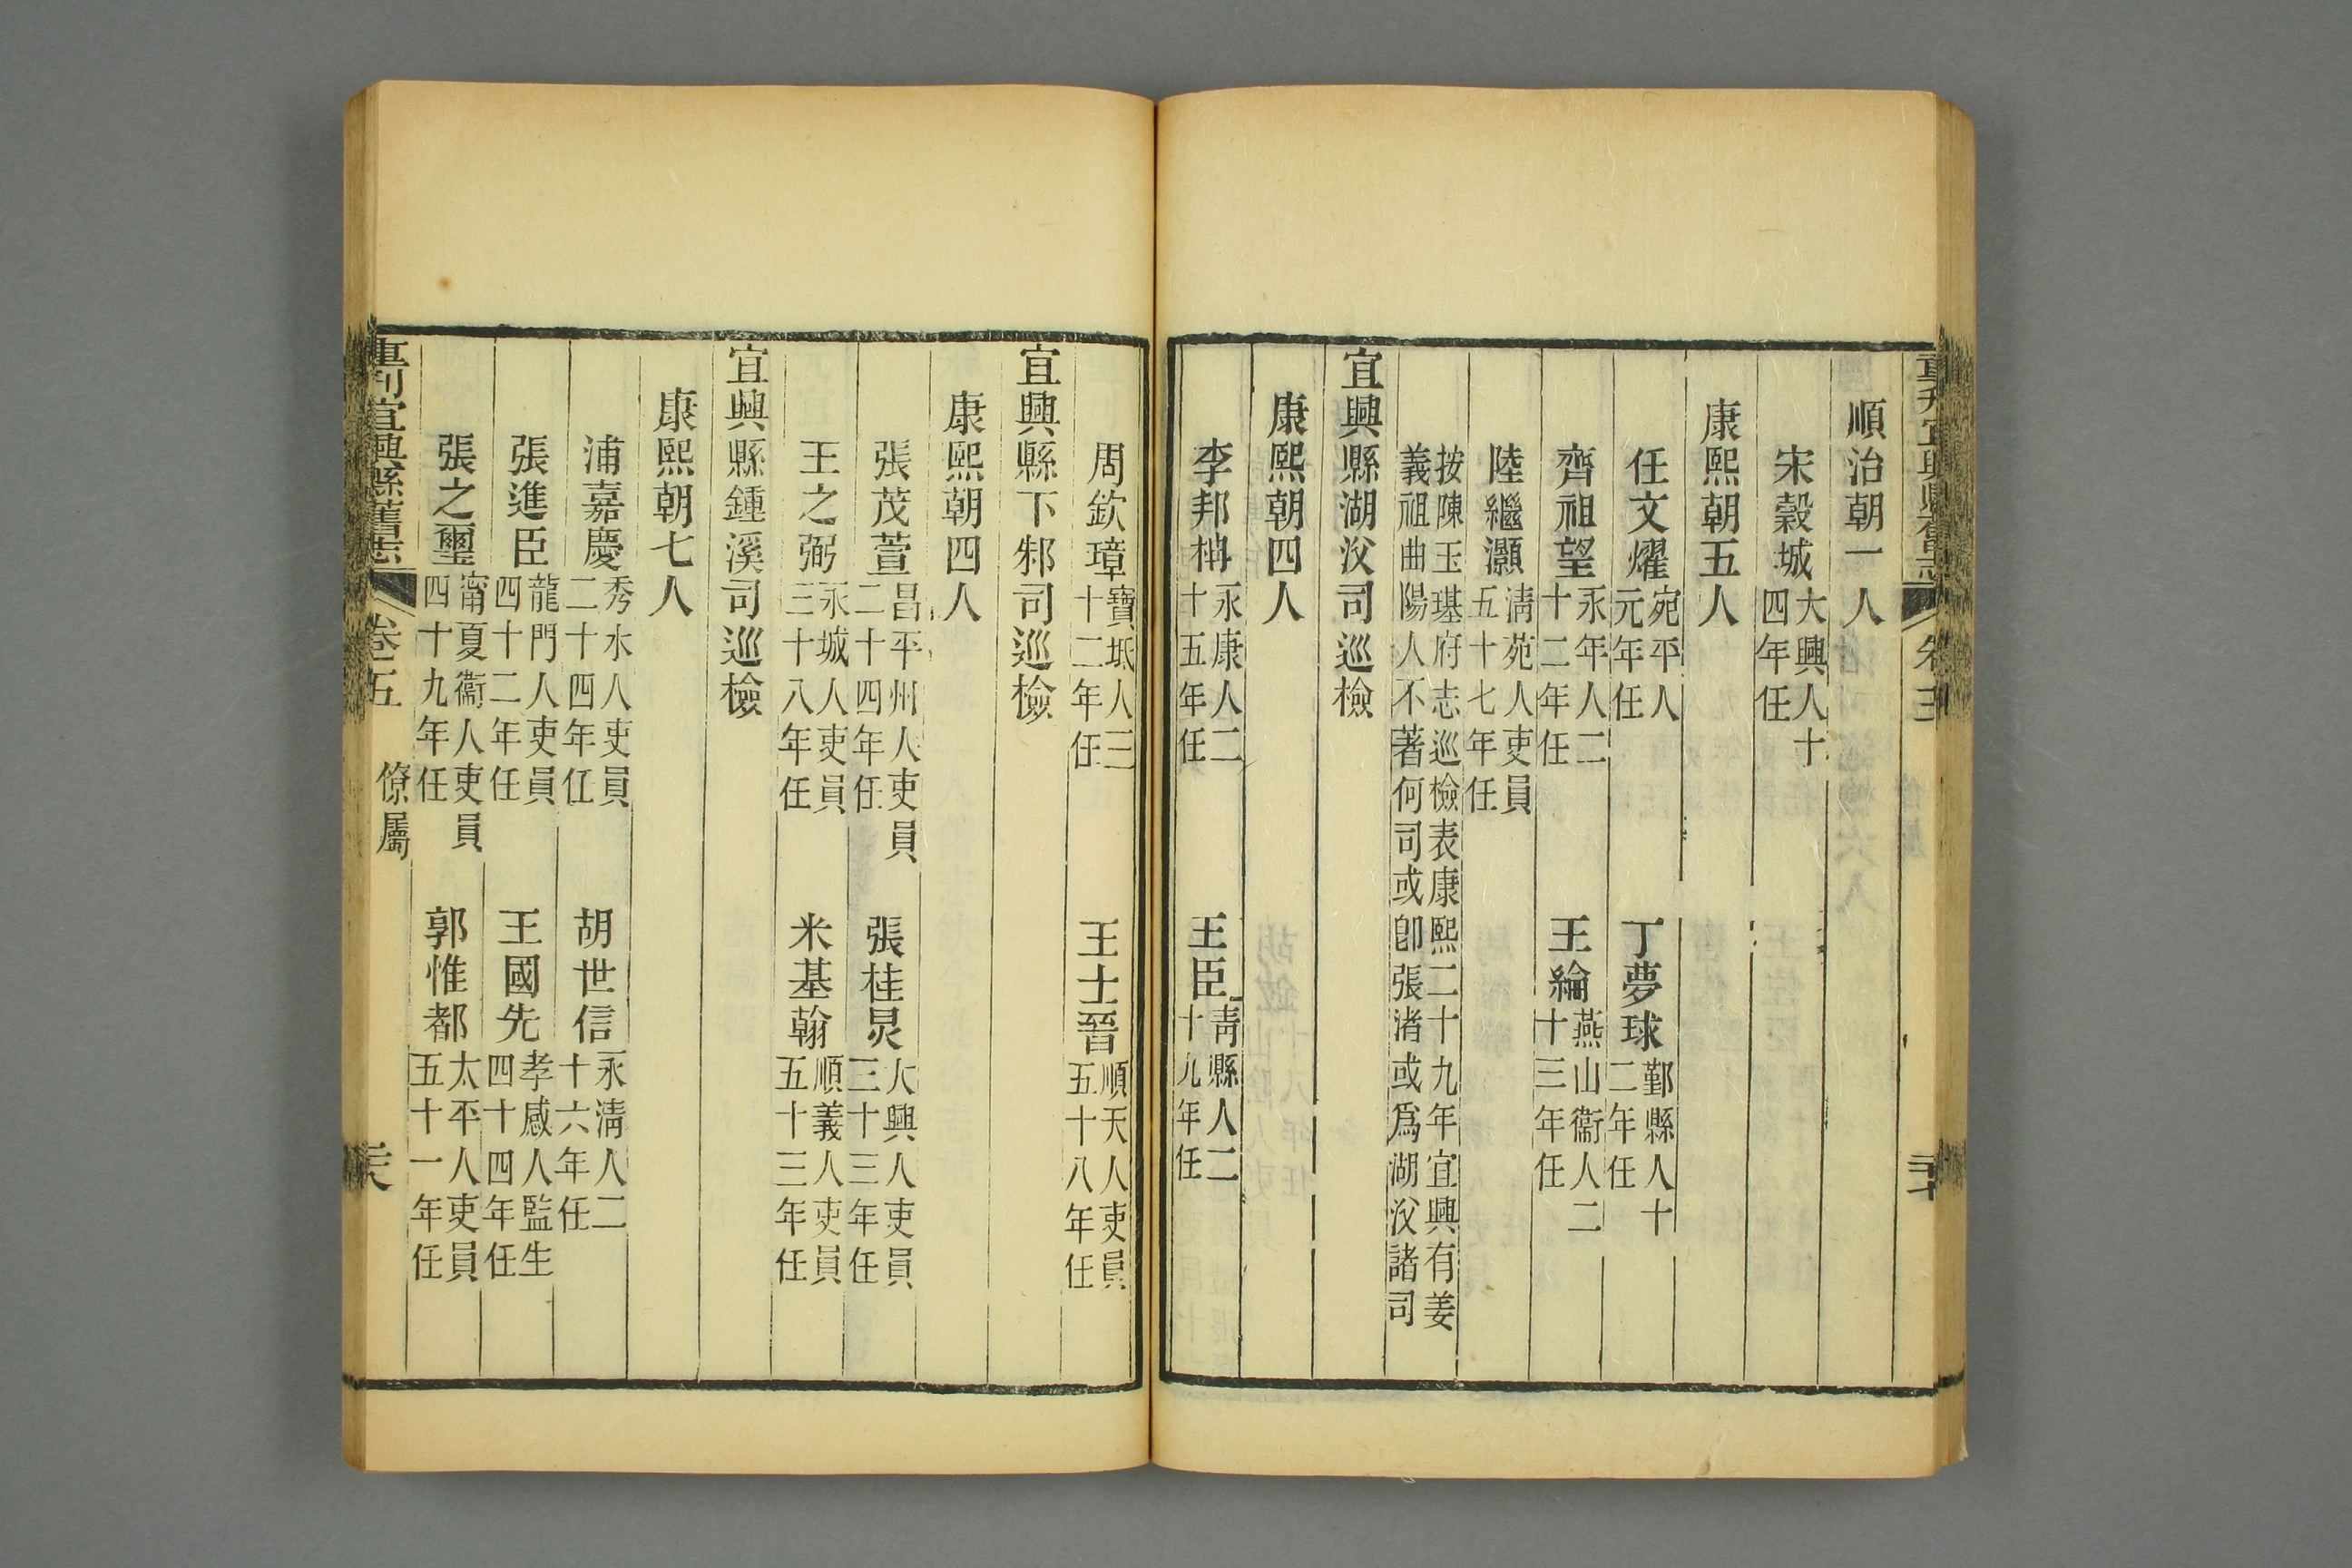 順治朝一人
宋穀城大興人十四年任
康熙朝五人
任文燿宛平人元年任 丁夢球鄞縣人十二年任
齊祖望永年人二十二年任 王綸燕山衞人二十三年任
陸繼灝淸苑人吏員五十七年任
按陳玉璂府志巡檢表康熙二十九年宜興有姜
義祖曲陽人不著何司或卽張渚或爲湖㳇諸司
宜興縣湖㳇司巡檢
康熙朝四人
李邦柟永康人二十五年任 王臣靑縣人二十九年任
周欽璋寶坻人三十二年任 王士晉順天人吏員五十八年任
宜興縣下邾司巡檢
康熙朝四人
張茂萱昌平州人吏員二十四年任 張桂炅大興人吏員三十三年任
王之弼永城人吏員三十八年任 米基翰順義人吏員五十三年任
宜興縣鍾溪司巡檢
康熙朝七人
浦嘉慶秀水人吏員二十四年任 胡世信永淸人二十六年任
張進臣龍門人吏員四十二年任 王國先孝感人監生四十四年任
張之璽甯夏衞人吏員四十九年任 郭惟都太平人吏員五十一年任
重刊宜興縣舊志 卷五 僚屬